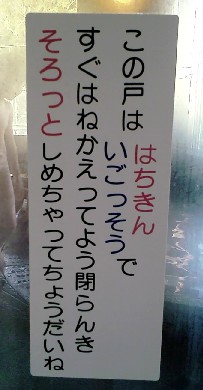 この戸は はちきん
いごっそうで
すぐはねかえってよう閉らんき
そろっとしめちゃってちょうだいね